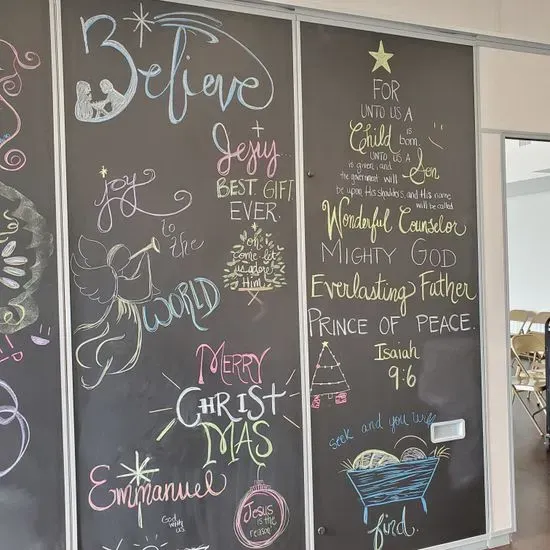 Believe
Jesus
BEST GIFT
EVER.
joy
to
the
WORLD
oh,
come let
us adore
Him
MERRY
CHRIST
MAS
Emmanuel
God
with
us
Jesus
is the
reason
FOR
UNTO US A
Child is born,
UNTO US A
Son
is given; and
the government will
be upon His shoulders, and His name
will be called
Wonderful Counselor
MIGHTY GOD
Everlasting Father
PRINCE OF PEACE.
Isaiah
9:6
seek and you will
find.